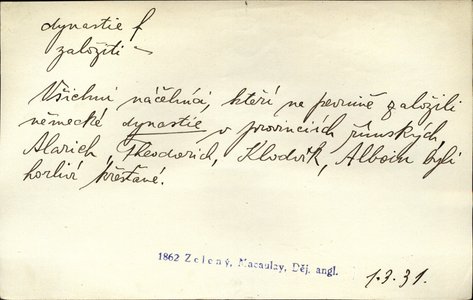 dynastie f
založiti –
Všichni náčelníci, kteří na pevnině založili
německé dynastie v provinciích římských,
Alarich, Theodorich, Klodvík, Alboin byli
horliví křesťané.
1862 Zelený, Macaulay, Děj. angl.
1.3.31.